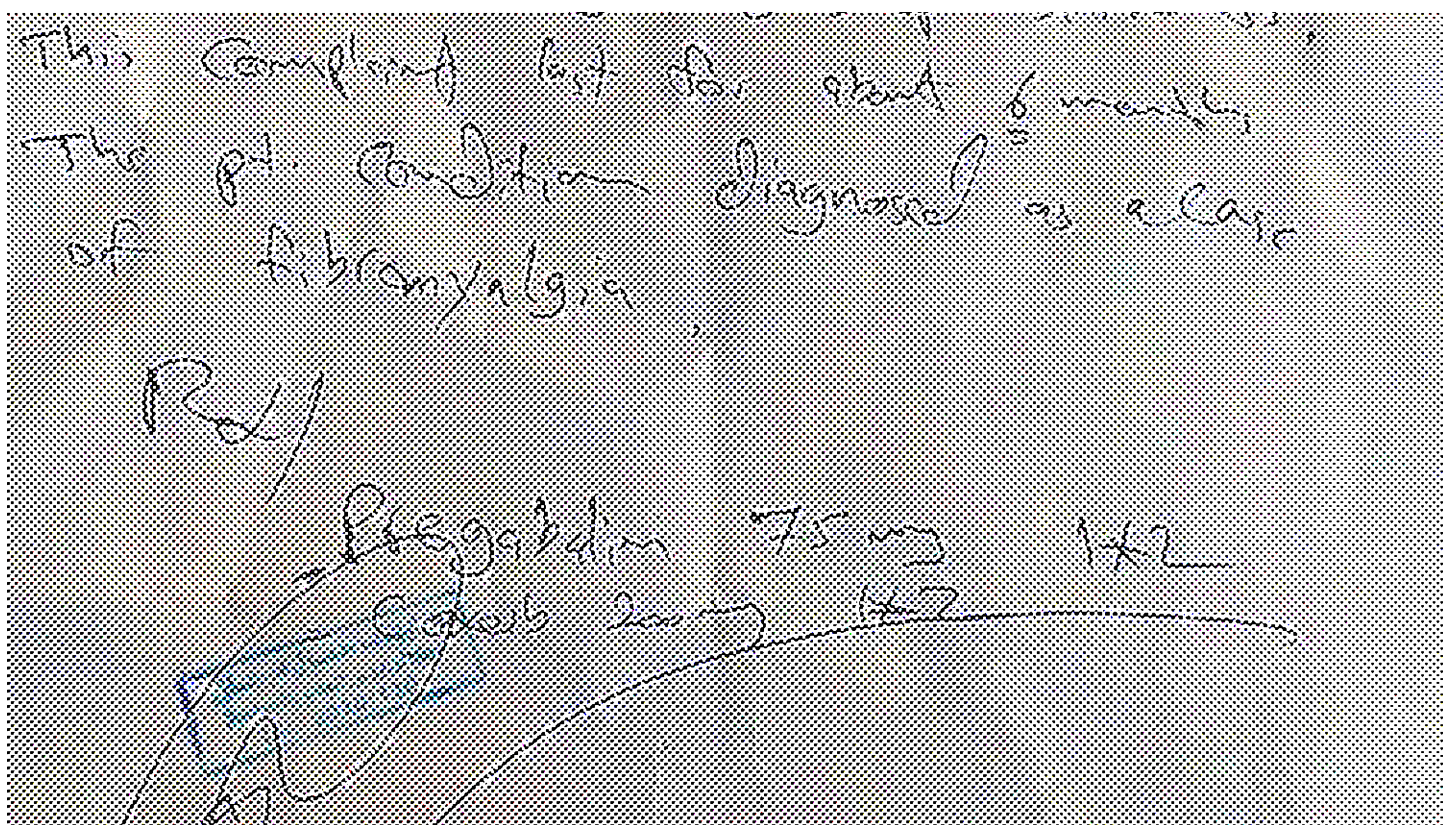 This Complaint last for about 6 months,
The pt. Condition diagnosed as a Case
of fibromyalgia.
Rx/
Pregabalin 75 mg 1*2
200 mg 1*2